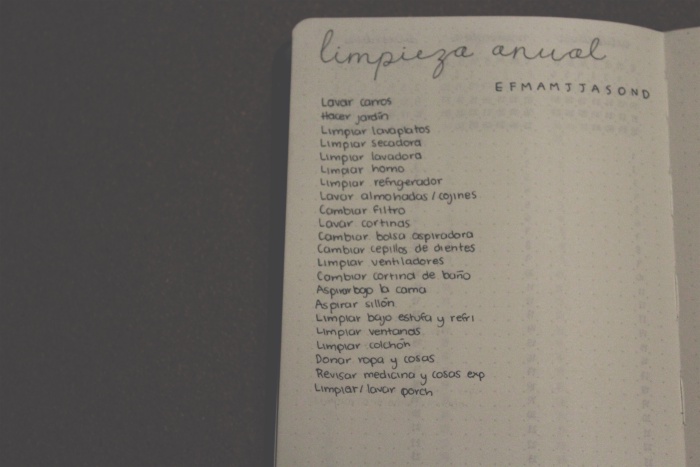 limpieza anual
E F M A M J J A S O N D
Lavar carros
Hacer jardín
Limpiar lavaplatos
Limpiar secadora
Limpiar lavadora
Limpiar horno
Limpiar refrigerador
Lavar almohadas / cojines
Cambiar filtro
Lavar cortinas
Cambiar bolsa aspiradora
Cambiar cepillos de dientes
Limpiar ventiladores
Cambiar cortina de baño
Aspirar bajo la cama
Aspirar sillón
Limpiar bajo estufa y refri
Limpiar ventanas
Limpiar colchón
Donar ropa y cosas
Revisar medicina y cosas exp
Limpiar / lavar porch